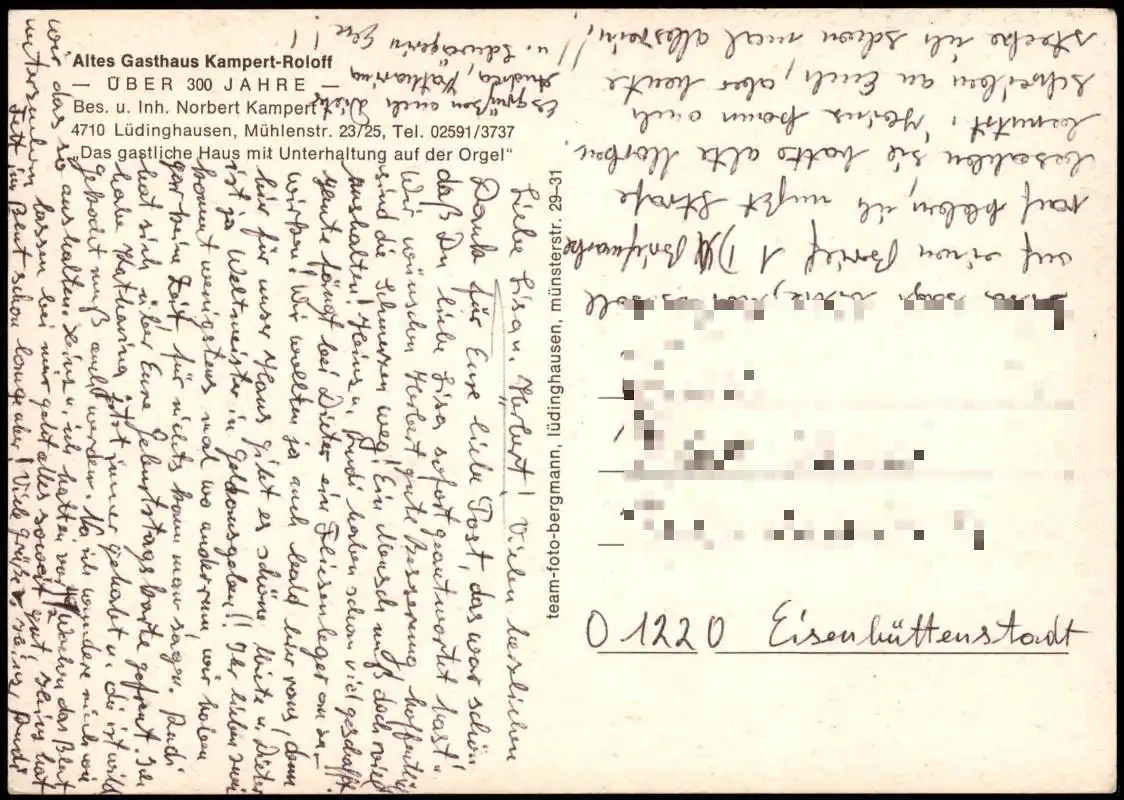 Altes Gasthaus Kampert-Roloff
— ÜBER 300 JAHRE —
Bes. u. Inh. Norbert Kampert
4710 Lüdinghausen, Mühlenstr. 23/25, Tel. 02591/3737
„Das gastliche Haus mit Unterhaltung auf der Orgel“
team-foto-bergmann, lüdinghausen, münsterstr. 29–31
Liebe Lisa u. Herbert! Vielen herzlichen
Dank für Eure liebe Post, das war schön
daß Du liebe Lisa sofort geantwortet hast.
Wir wünschen Herbert gute Besserung hoffentlich
sind die Schmerzen weg! Ein Mensch muß doch viel
aushalten! Heinz u. Rudi haben schon viel geschafft.
heute fängt bei Dieter ein Fliesenleger an zu
wirken! Wir wollten ja auch bald hier raus, denn
hier für unser Haus gibt es schöne Miete u. Dieter
ist ja Weltmeister in Geldausgeben!! Ihr Lieben
kommt wenigstens mal wo anders rum, wir haben
gar keine Zeit für nichts kann man sagen. Rudi
hat sich über Eure Geburtstagskarte gefreut. Ich
habe Katharina jetzt immer gehabt u. die ist wild
gekocht muß auch werden. Na ich wundere mich wie
wir das so aushalten. Heinz u. ich hatten vor Wochen das Blut
untersuchen lassen bei mir geht alles soweit gut, Heinz hat
Fett im Blut schon lange aber! Viele Grüße v. Heinz, Rudi
Es grüßen auch Dieter
Andrea, Katharina
u. Schwägerin
auf einen Brief 1 DM Briefmarke
rauf kleben, ich mußt Strafe
bezahlen sie hatte alte Marken
benutzt. Heinz kann auch
schreiben an Euch, aber heute
stecke ich schon mal alles rein!
O 1220 Eisenhüttenstadt